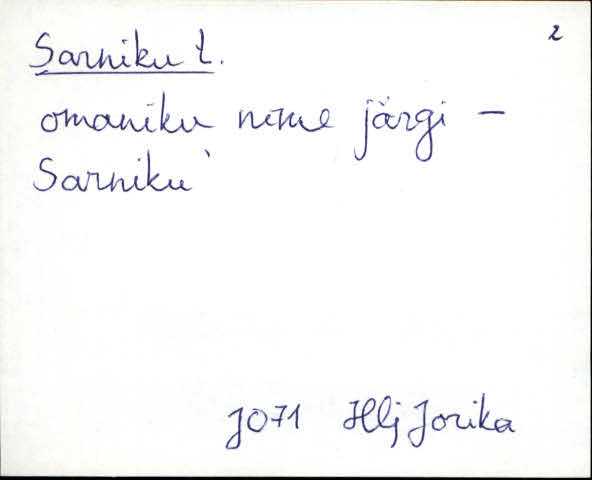 2
Sarniku t.
omaniku nime järgi –
Sarniku
J071 Hlj Jorika